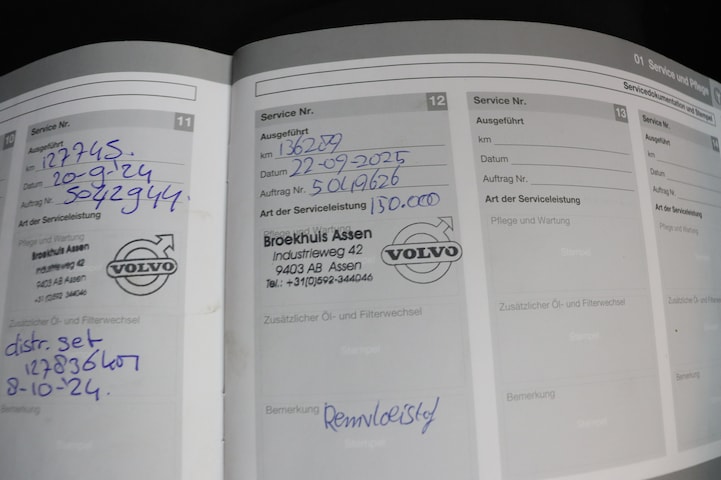 01 Service und Pflege
Servicedokumentation und Stempel
10
Service Nr. 11
Ausgeführt
km 127745.
Datum 20-9-'24
Auftrag Nr. 5042944.
Art der Serviceleistung
Pflege und Wartung
Broekhuis Assen
Industrieweg 42
9403 AB Assen
+31(0)592-344046
VOLVO
Zusätzlicher Öl- und Filterwechsel
distr. set
127836km
8-10-'24.
Bemerkung
Stempel
Service Nr. 12
Ausgeführt
km 136289
Datum 22-09-2025
Auftrag Nr. 5049626
Art der Serviceleistung 150.000
Pflege und Wartung
Broekhuis Assen
Industrieweg 42
9403 AB Assen
Tel.: +31(0)592-344046
VOLVO
Zusätzlicher Öl- und Filterwechsel
Stempel
Bemerkung Remvloeistof
Stempel
Service Nr. 13
Ausgeführt
km
Datum
Auftrag Nr.
Art der Serviceleistung
Pflege und Wartung
Stempel
Zusätzlicher Öl- und Filterwechsel
Stempel
Bemerkung
Stempel
Service Nr.
Ausgeführt
km
Datum
Auftrag Nr.
Art der Serviceleistung
Pflege und Wartung
Zusätzlicher Öl- und
Bemerkung